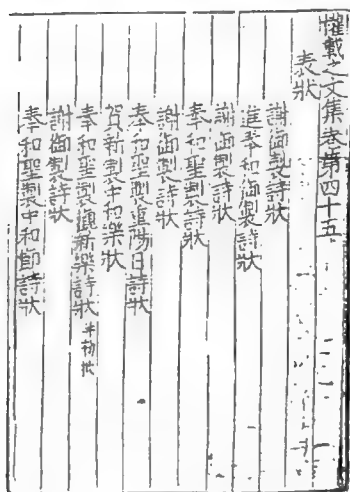 權載之文集卷第四十五
表狀
謝御製詩狀
進奉和御製詩狀
謝御製詩狀
奉和聖製詩狀
謝御製詩狀
奉和聖製重陽日詩狀
賀新製中和樂狀
奉和聖製觀新樂詩狀并勑批
謝御製詩狀
奉和聖製中和節詩狀